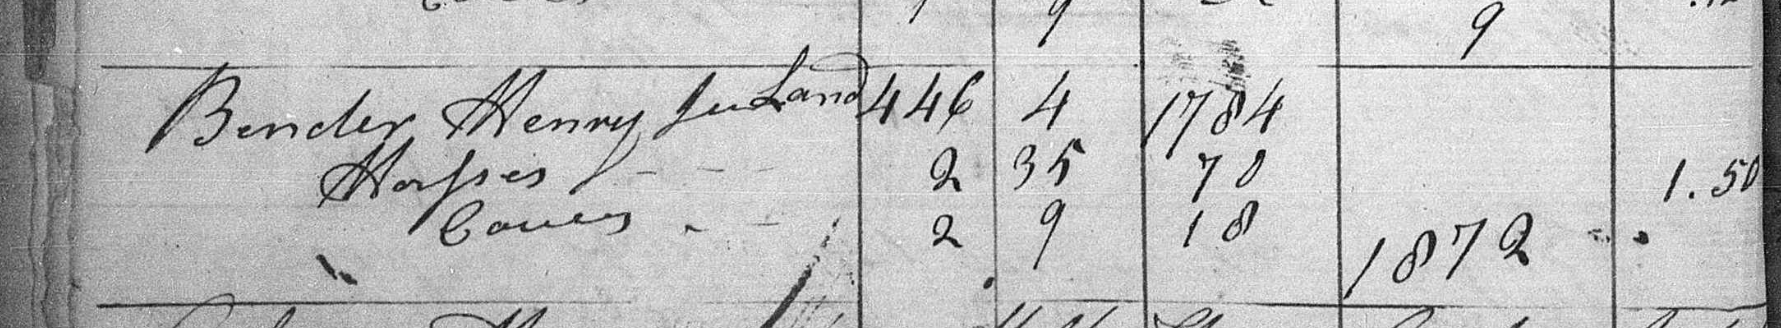 9
Bender Henry Jur Land 446 4 1784
Horses 2 35 70 1.50
Cows 2 9 18 1872